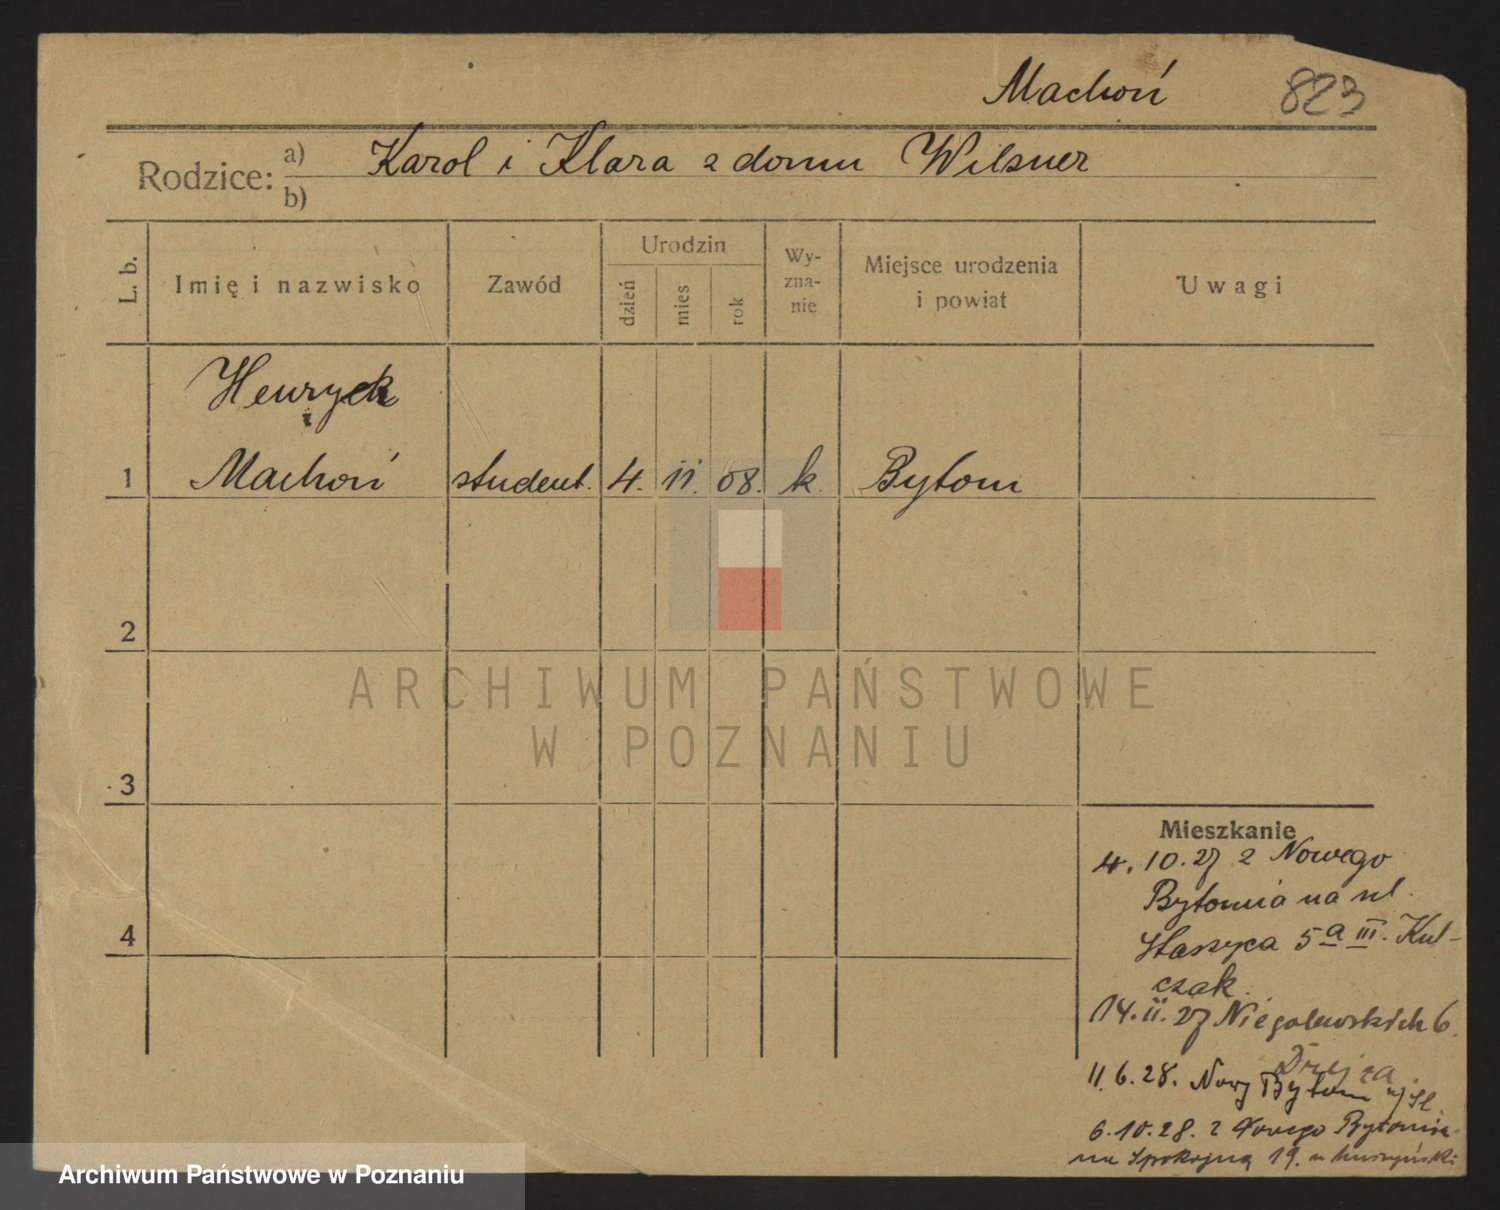 Machoń 823
Rodzice: a) Karol i Klara z domu Wilsner
b)
L. b.
Imię i nazwisko
Zawód
Urodzin
dzień
mies
rok
Wy-
zna-
nie
Miejsce urodzenia
i powiat
Uwagi
Henryk
i
1 Machoń student. 4. 11. 08. k. Bytom
2
3
4
ARCHIWUM PAŃSTWOWE
W POZNANIU
Mieszkanie
4. 10. 27 z Nowego
Bytomia na ul.
Staszyca 5 a III. Kul-
czak.
14. 11. 27 Niegolewskich 6.
Drejza
11. 6. 28. Nowy Bytom Śl.
6. 10. 28. z Nowego Bytomia
na Spokojną 19. u
Archiwum Państwowe w Poznaniu